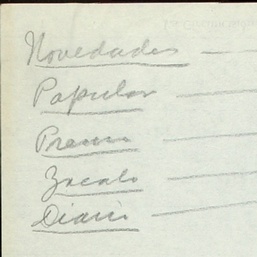 Novedades —
Popular —
Prensa —
Zocalo —
Diario —